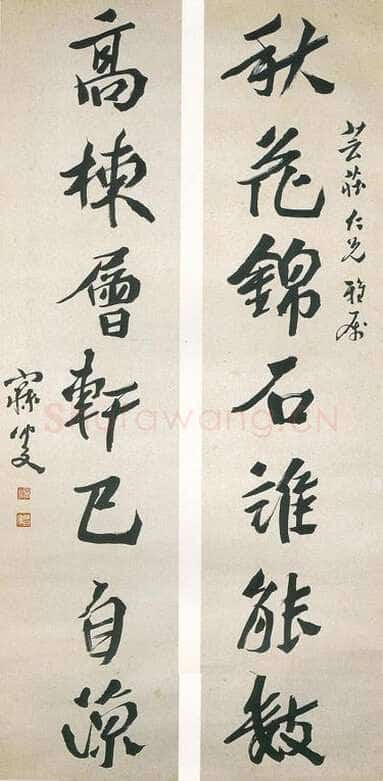 秋花錦石誰能數
芸莊仁兄雅屬
高棟層軒已自涼
寐叟
Shufawang.CN